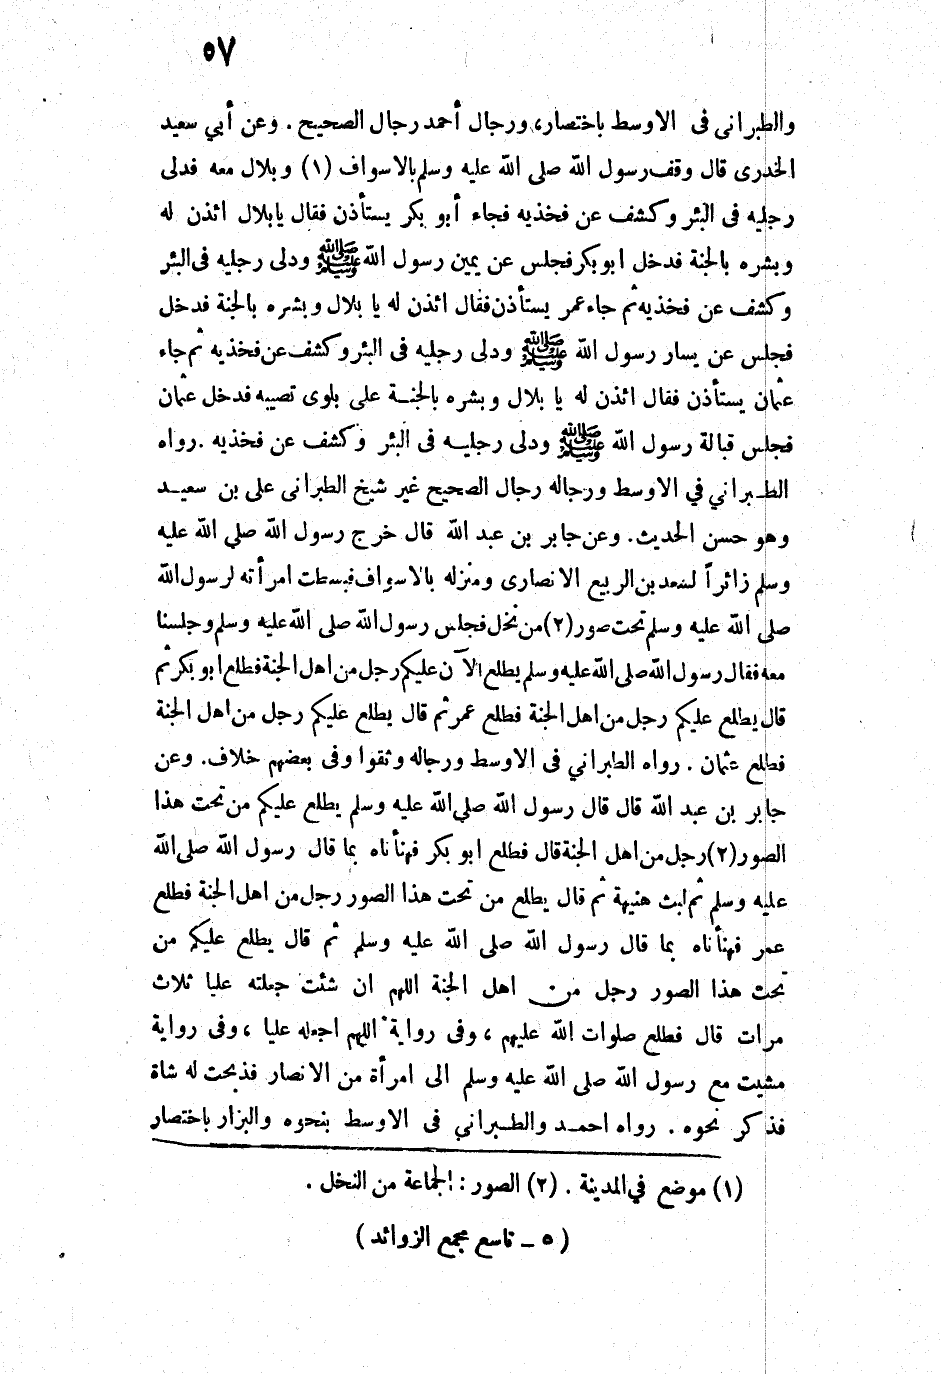 ٥٧
والطبراني في الاوسط باختصار، ورجال أحمد رجال الصحيح. وعن أبي سعيد
الخدرى قال وقف رسول الله صلى الله عليه وسلم بالاسواف (١) وبلال معه فدلى
رجليه فى البئر وكشف عن فخذيه فجاء أبو بكر يستأذن فقال يابلال ائذن له
وبشره بالجنة فدخل ابوبكر فجلس عن يمين رسول الله ﷺ ودلى رجليه فى البئر
وكشف عن فخذيه ثم جاء عمر يستأذن فقال ائذن له يا بلال وبشره بالجنة فدخل
فجلس عن يسار رسول الله ﷺ ودلى رجليه فى البئر وكشف عن فخذيه ثم جاء
عثمان يستأذن فقال ائذن له يا بلال وبشره بالجنة على بلوى تصيبه فدخل عثمان
فجلس قبالة رسول الله ﷺ ودلى رجليه فى البئر وكشف عن فخذيه . رواه
الطبراني في الاوسط ورجاله رجال الصحيح غير شيخ الطبرانى على بن سعيد
وهو حسن الحديث. وعن جابر بن عبد الله قال خرج رسول الله صلى الله عليه
وسلم زائراً لسعد بن الربيع الانصارى ومنزله بالاسواف فبسطت امرأته لرسول الله
صلى الله عليه وسلم تحت صور (٢) من نخل فجلس رسول الله صلى الله عليه وسلم وجلسنا
معه فقال رسول الله صلى الله عليه وسلم يطلع الآن عليكم رجل من اهل الجنة فطلع ابو بكر ثم
قال يطلع عليكم رجل من اهل الجنة فطلع عمر ثم قال يطلع عليكم رجل من اهل الجنة
فطلع عثمان . رواه الطبراني فى الاوسط ورجاله وثقوا وفى بعضهم خلاف. وعن
جابر بن عبد الله قال قال رسول الله صلى الله عليه وسلم يطلع عليكم من تحت هذا
الصور (٢) رجل من اهل الجنة قال فطلع ابو بكر فهنأناه بما قال رسول الله صلى الله
عليه وسلم ثم لبث هنيهة ثم قال يطلع من تحت هذا الصور رجل من اهل الجنة فطلع
عمر فهنأناه بما قال رسول الله صلى الله عليه وسلم ثم قال يطلع عليكم من
تحت هذا الصور رجل من اهل الجنة اللهم ان شئت جعلته عليا ثلاث
مرات قال فطلع صلوات الله عليهم ، وفى رواية اللهم اجعله عليا ، وفى رواية
مشيت مع رسول الله صلى الله عليه وسلم الى امرأة من الانصار فذبحت له شاة
فذكر نحوه . رواه احمد والطبراني فى الاوسط بنحوه والبزار باختصار
(١) موضع في المدينة . (٢) الصور : الجماعة من النخل .
( ٥ ــ تاسع مجمع الزوائد )